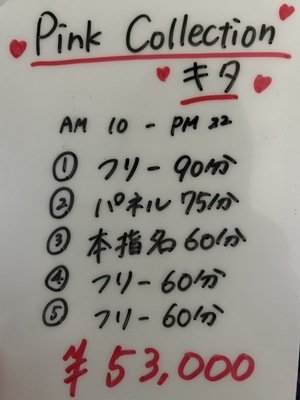 Pink Collection
キタ
AM 10 - PM 22
① フリー 90分
② パネル 75分
③ 本指名 60分
④ フリー 60分
⑤ フリー 60分
¥53,000